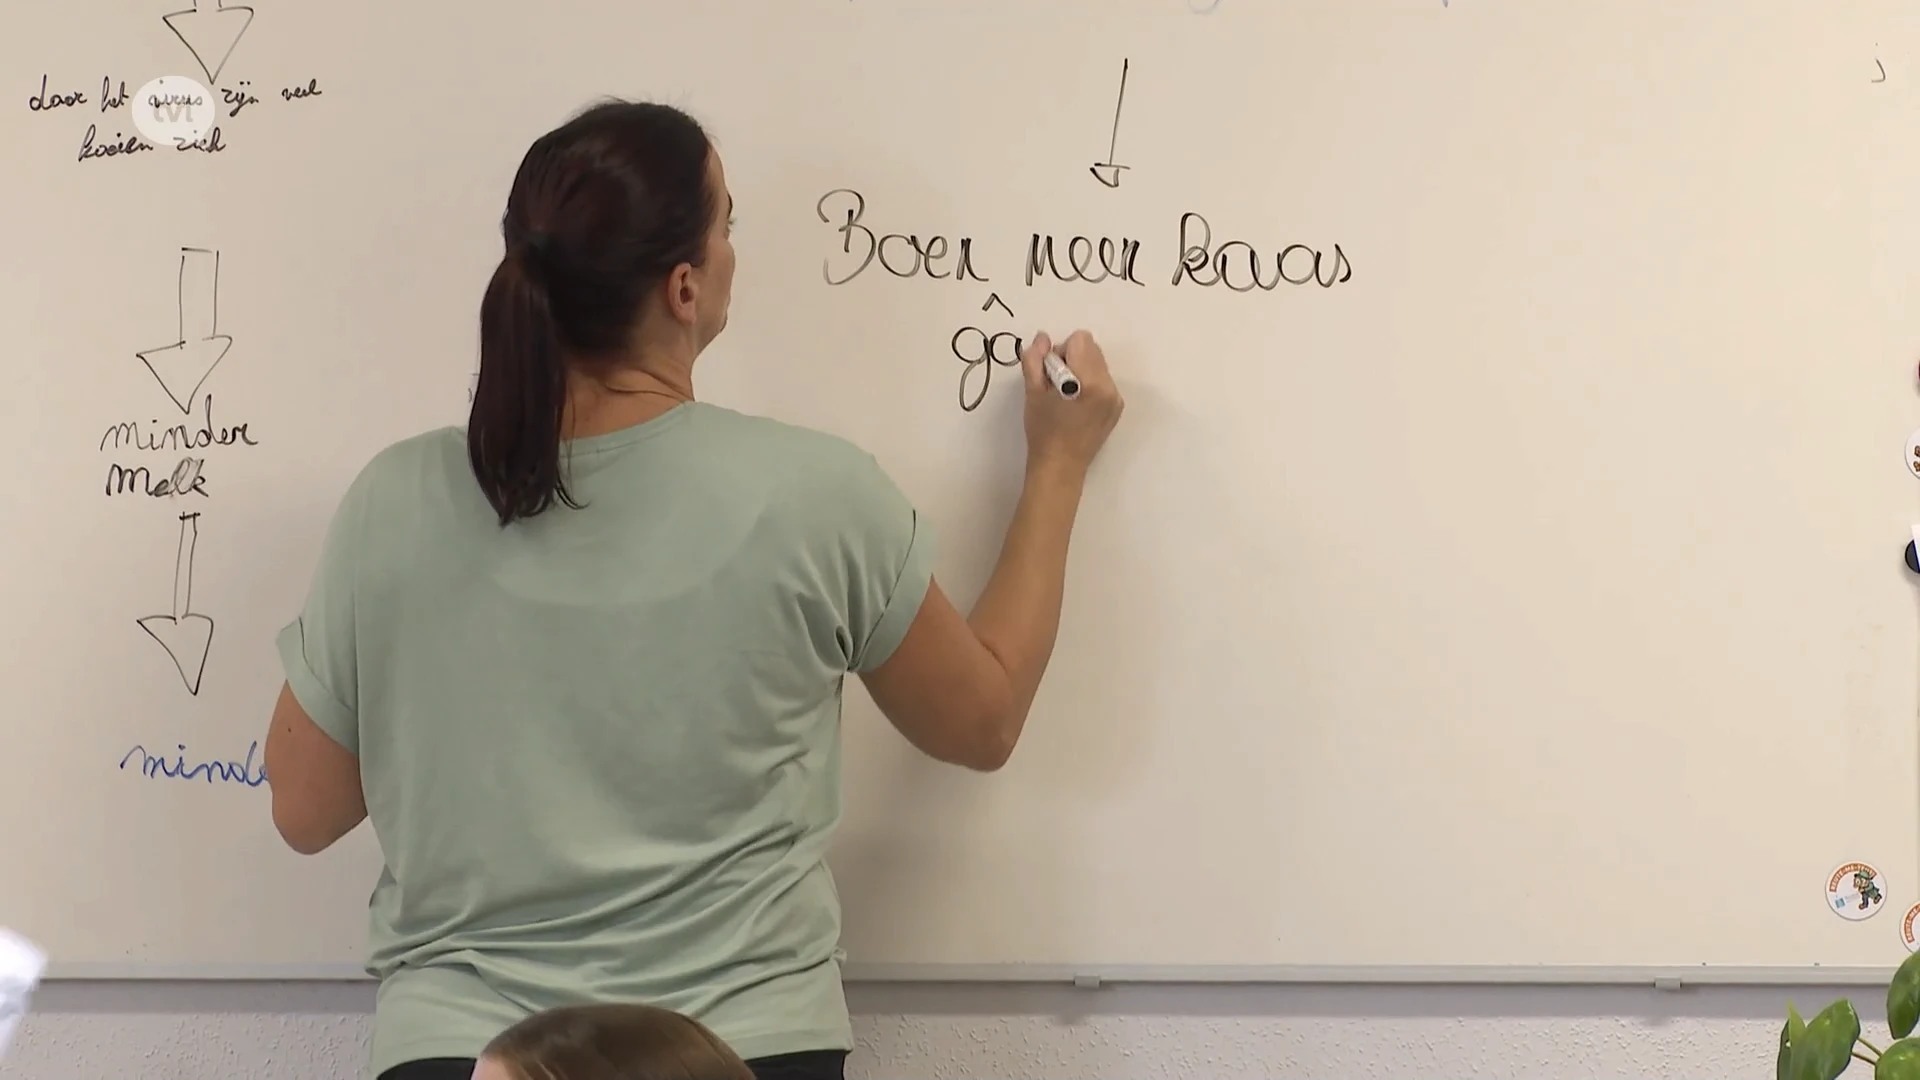 door het virus zijn veel
koeien ziek
minder
melk
minde
Boer meer kaas
^
ga
tvl